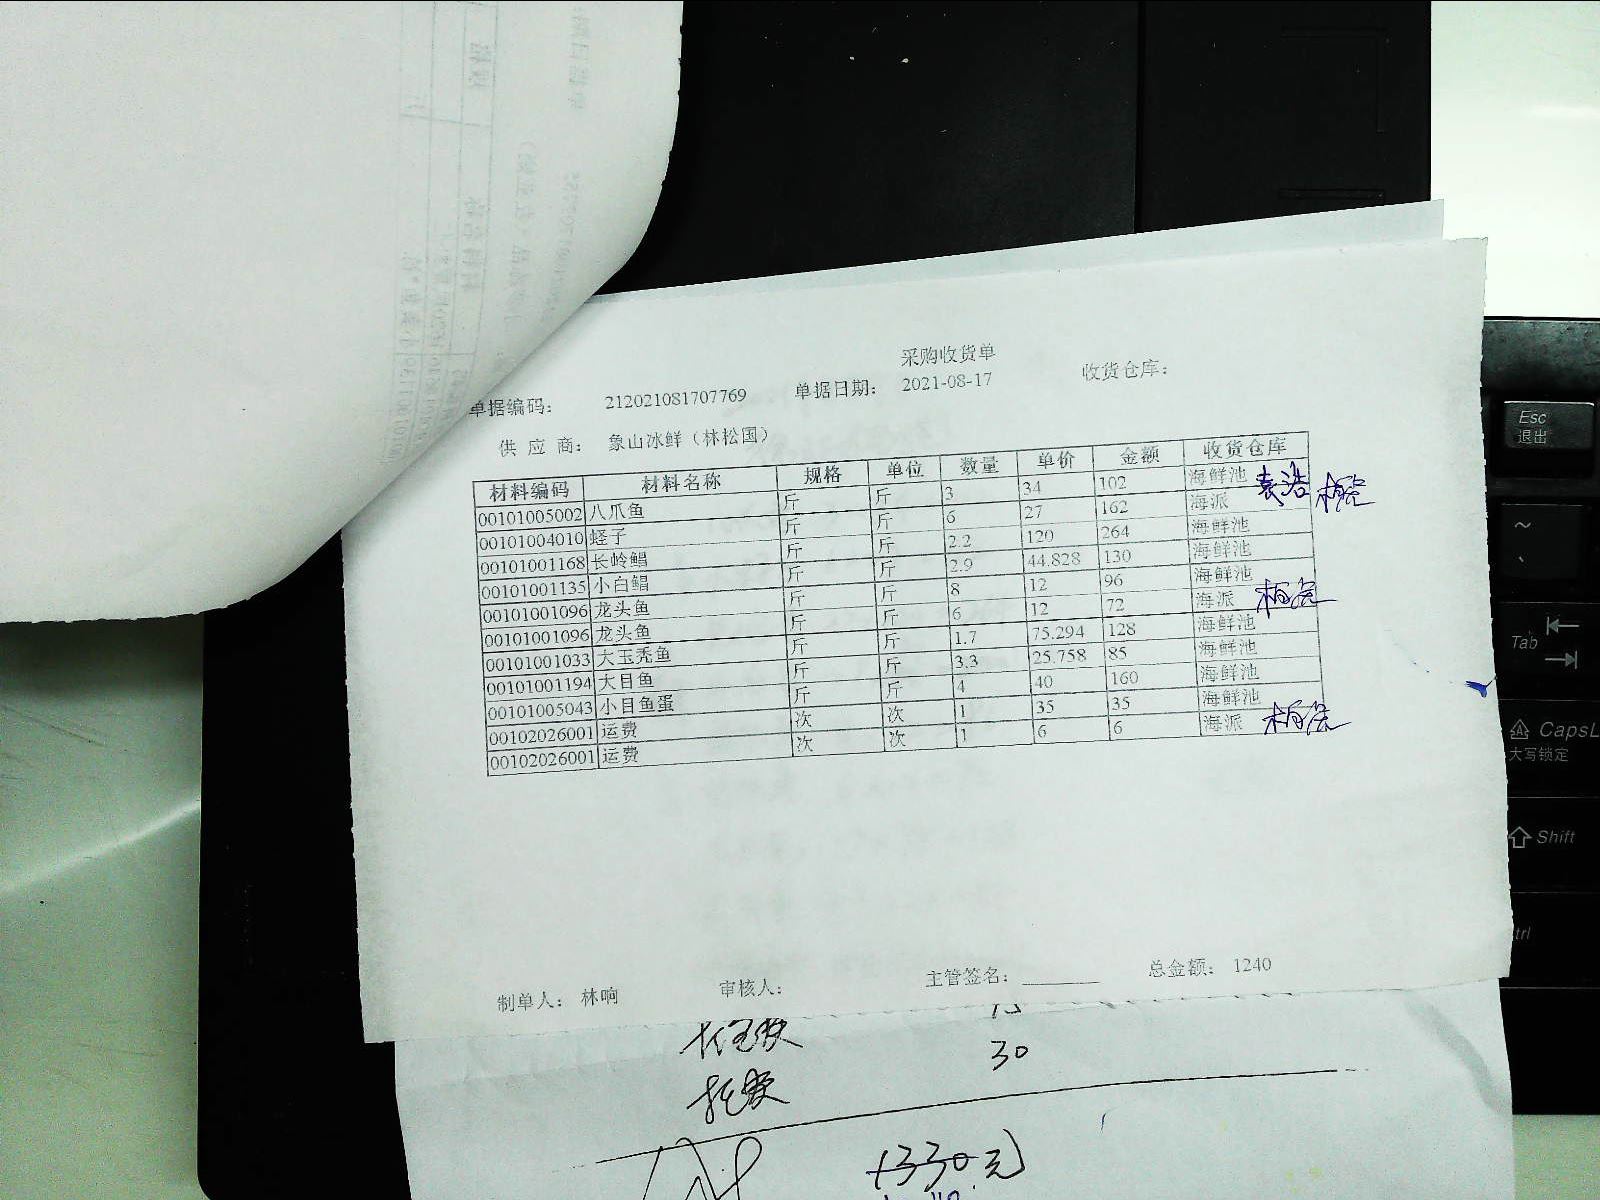 采购收货单
单据编码： 212021081707769 单据日期： 2021-08-17 收货仓库：
供 应 商： 象山冰鲜（林松国）
材料编码 材料名称 规格 单位 数量 单价 金额 收货仓库
00101005002 八爪鱼 斤 斤 3 34 102 海鲜池
00101004010 蛏子 斤 斤 6 27 162 海派
00101001168 长岭鲳 斤 斤 2.2 120 264 海鲜池
00101001135 小白鲳 斤 斤 2.9 44.828 130 海鲜池
00101001096 龙头鱼 斤 斤 8 12 96 海鲜池
00101001096 龙头鱼 斤 斤 6 12 72 海派
00101001033 大玉秃鱼 斤 斤 1.7 75.294 128 海鲜池
00101001194 大目鱼 斤 斤 3.3 25.758 85 海鲜池
00101005043 小目鱼蛋 斤 斤 4 40 160 海鲜池
00102026001 运费 次 次 1 35 35 海鲜池
00102026001 运费 次 次 1 6 6 海派
制单人： 林响 审核人： 主管签名： 总金额： 1240
30
托费
1330元
Esc
退出
~
Tab
CapsL
大写锁定
Shift
trl